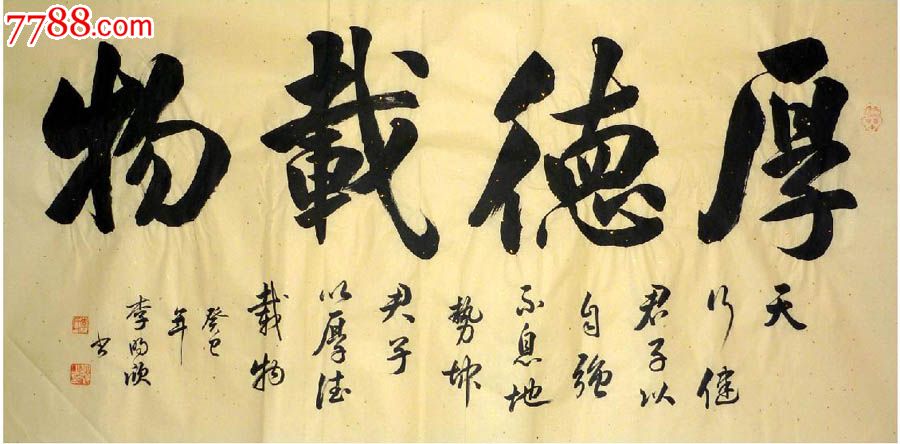 7788.com
厚德載物
天
行健
君子以
自强
不息地
勢坤
君子
以厚德
載物
癸巳
年
李
书